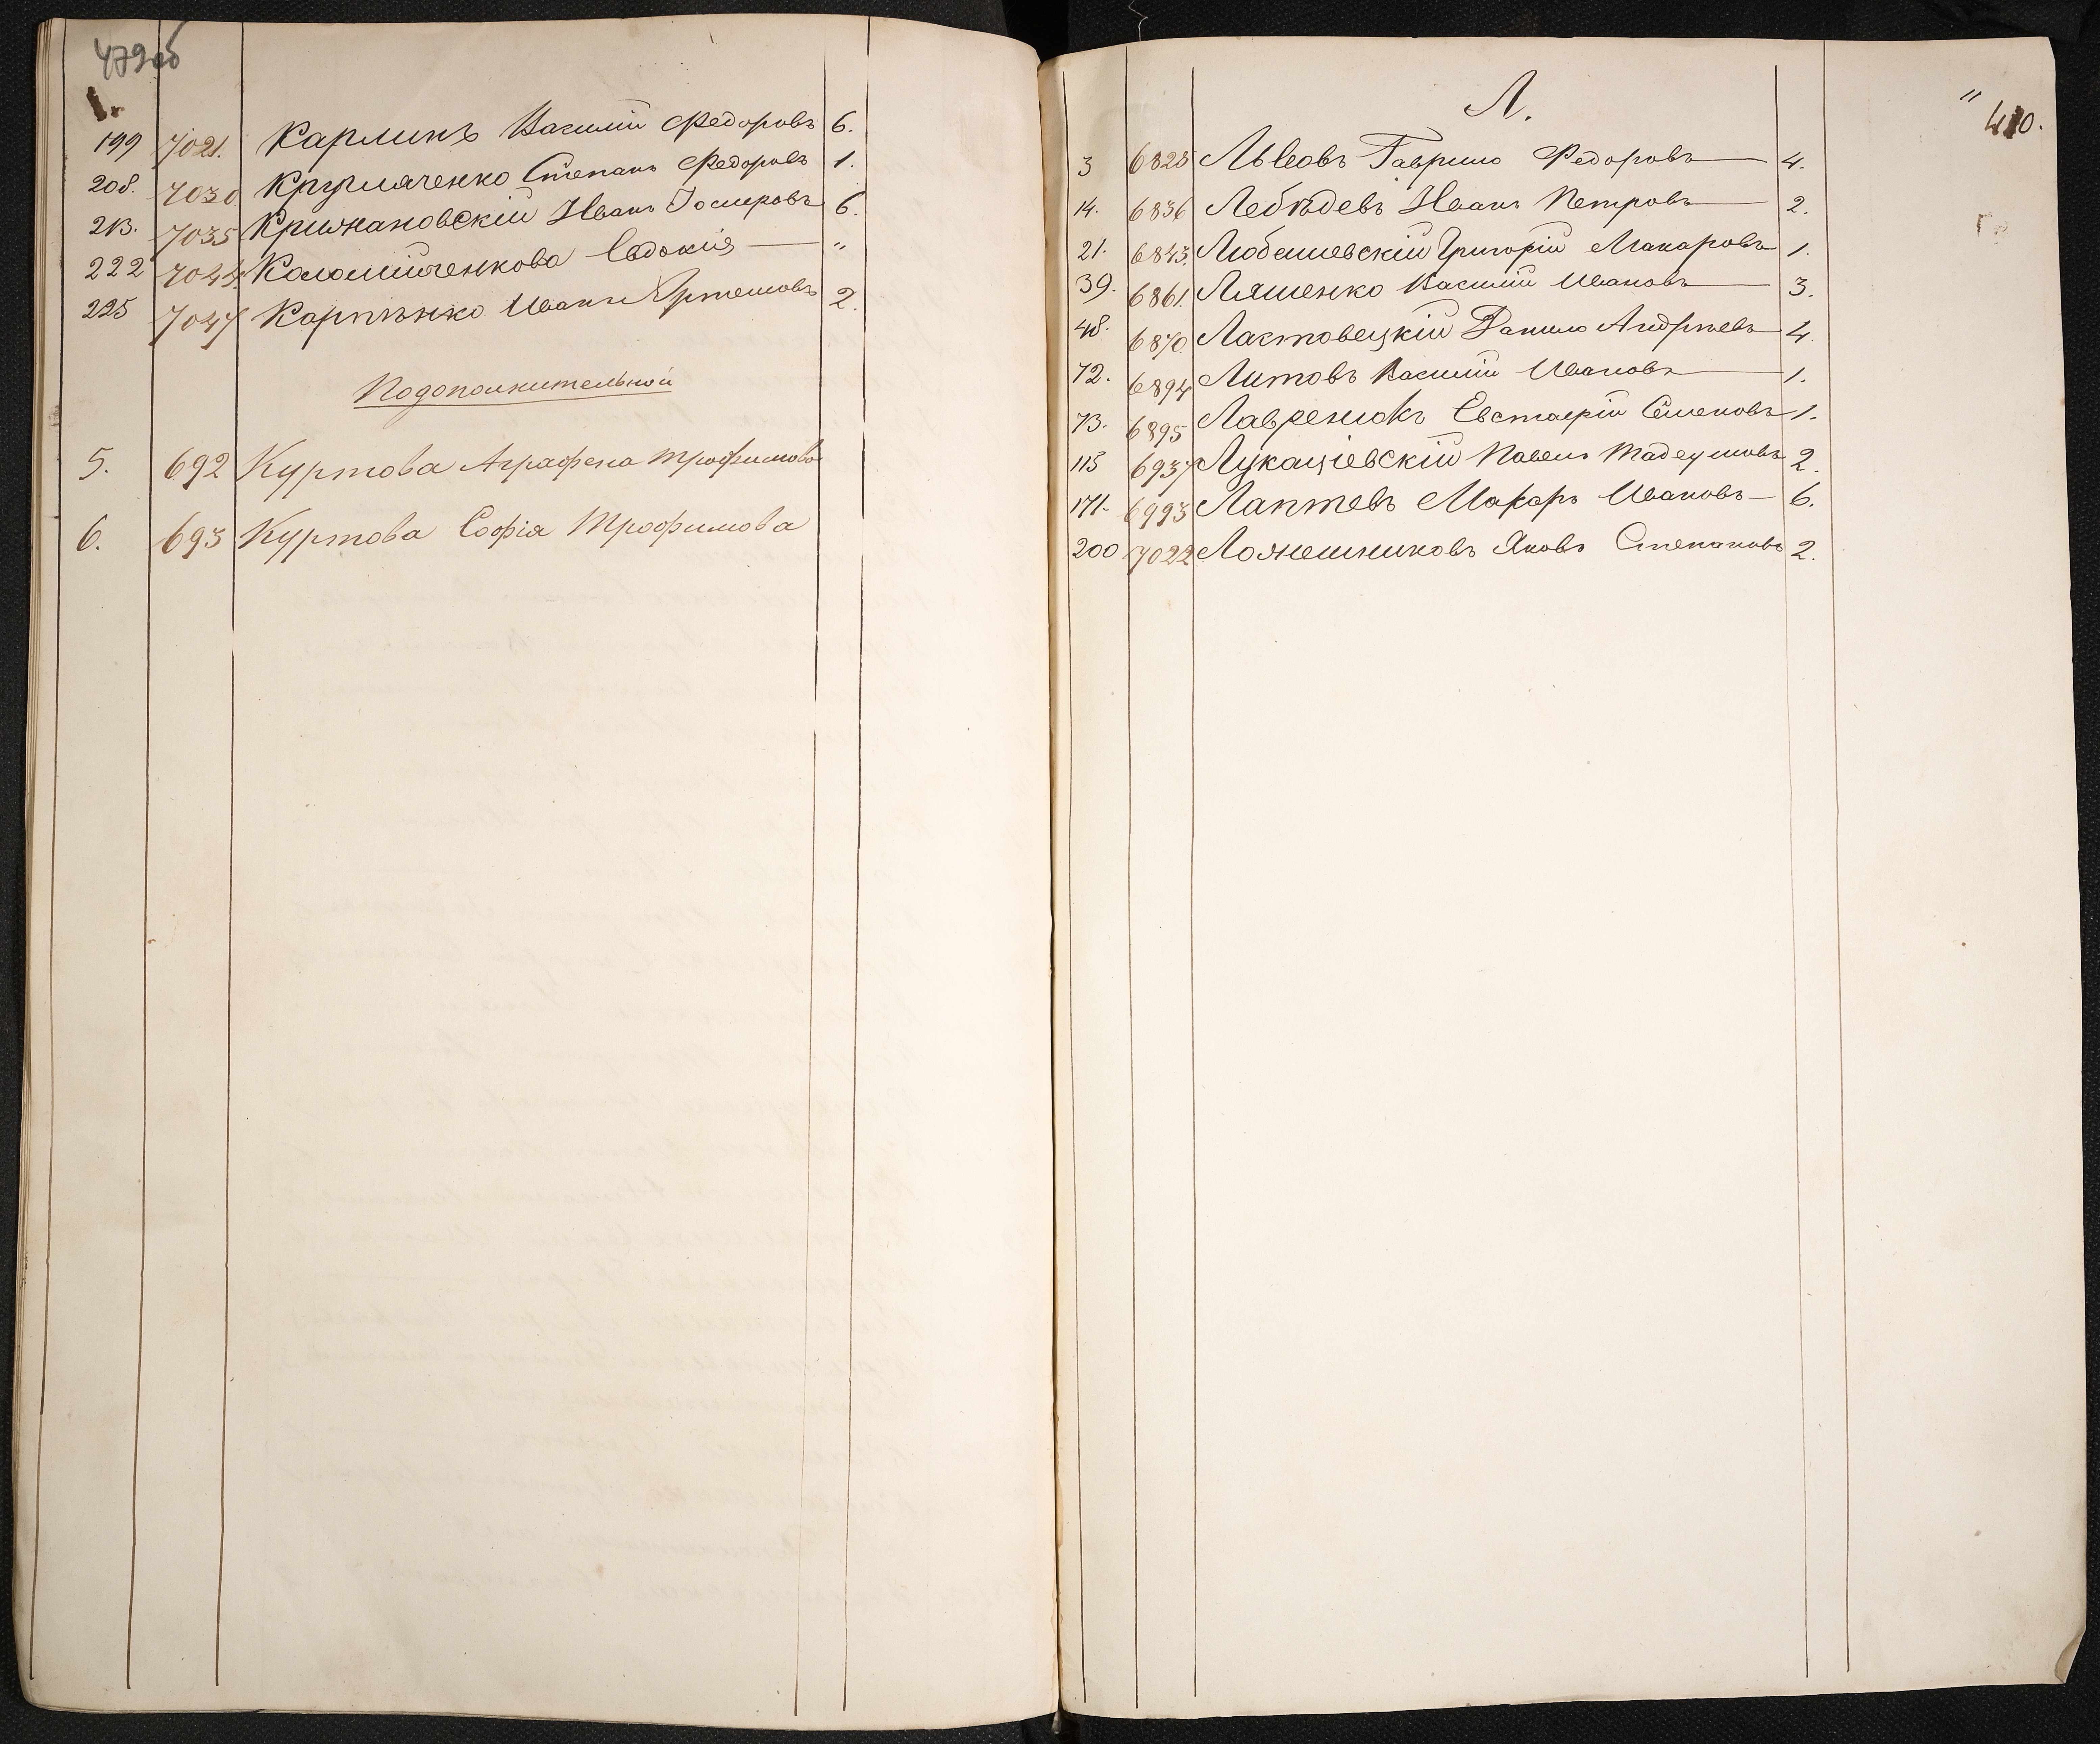 479об
1.
199 7021. Карлинъ Василій Федоровъ 6.
208. 7030 Кругляченко Степанъ Федоровъ 1.
213. 7035 Крижановскій Иванъ Іосифовъ 6.
222 7044. Коломійченкова Евдокія — "
225 7047 Карпѣнко Иванъ Артемовъ 2.
Подополнительной
5. 692 Куртова Аграфена Трофимова
6. 693 Куртова Софія Трофимова
Л.
" 410.
3 6825 Львовъ Гаврило Федоровъ — 4.
14. 6836 Лебѣдевъ Иванъ Петровъ — 2.
21. 6843. Любашевскій Григорій Макаровъ 1.
39. 6861. Ляшенко Василій Ивановъ — 3.
48. 6870. Ластовецкій Данило Андреевъ 4.
72. 6894 Литовъ Василій Ивановъ — 1.
73. 6895 Лавренюкъ Евстафій Семеновъ 1.
115 6937 Лукашіевскій Павелъ Тадеушовъ 2.
171. 6993 Лаптевъ Макаръ Ивановъ — 6.
200 7022 Ложешниковъ Яковъ Степановъ 2.